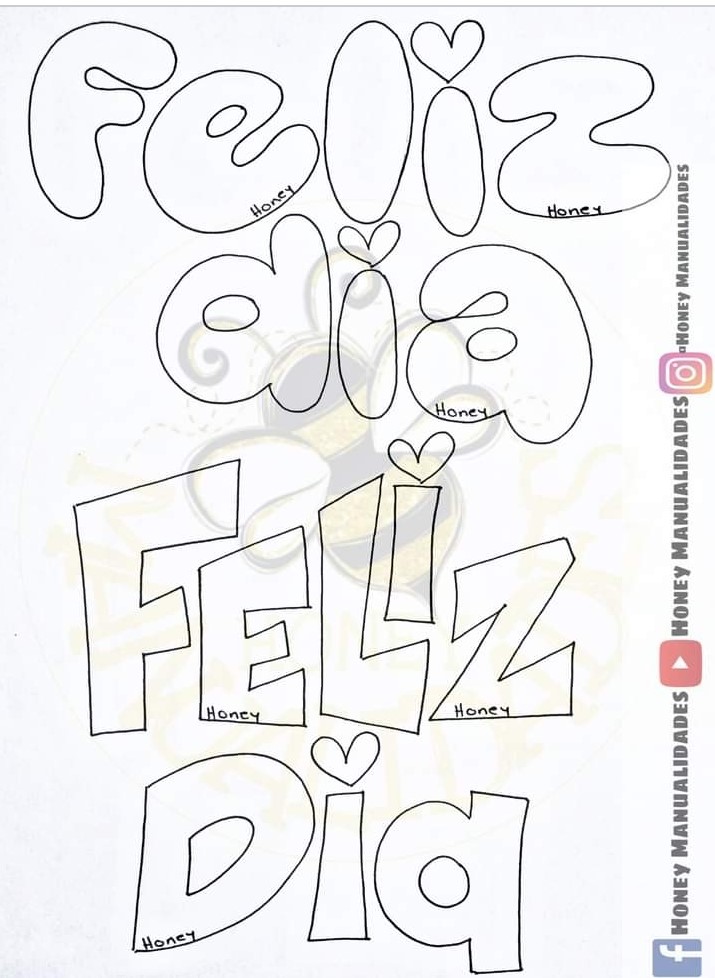 Feliz
Honey
Honey
dia
Honey
FELiZ
Honey
Honey
Dia
Honey
@Honey Manualidades
Honey Manualidades
Honey Manualidades
HONEY
MANUALIDADES